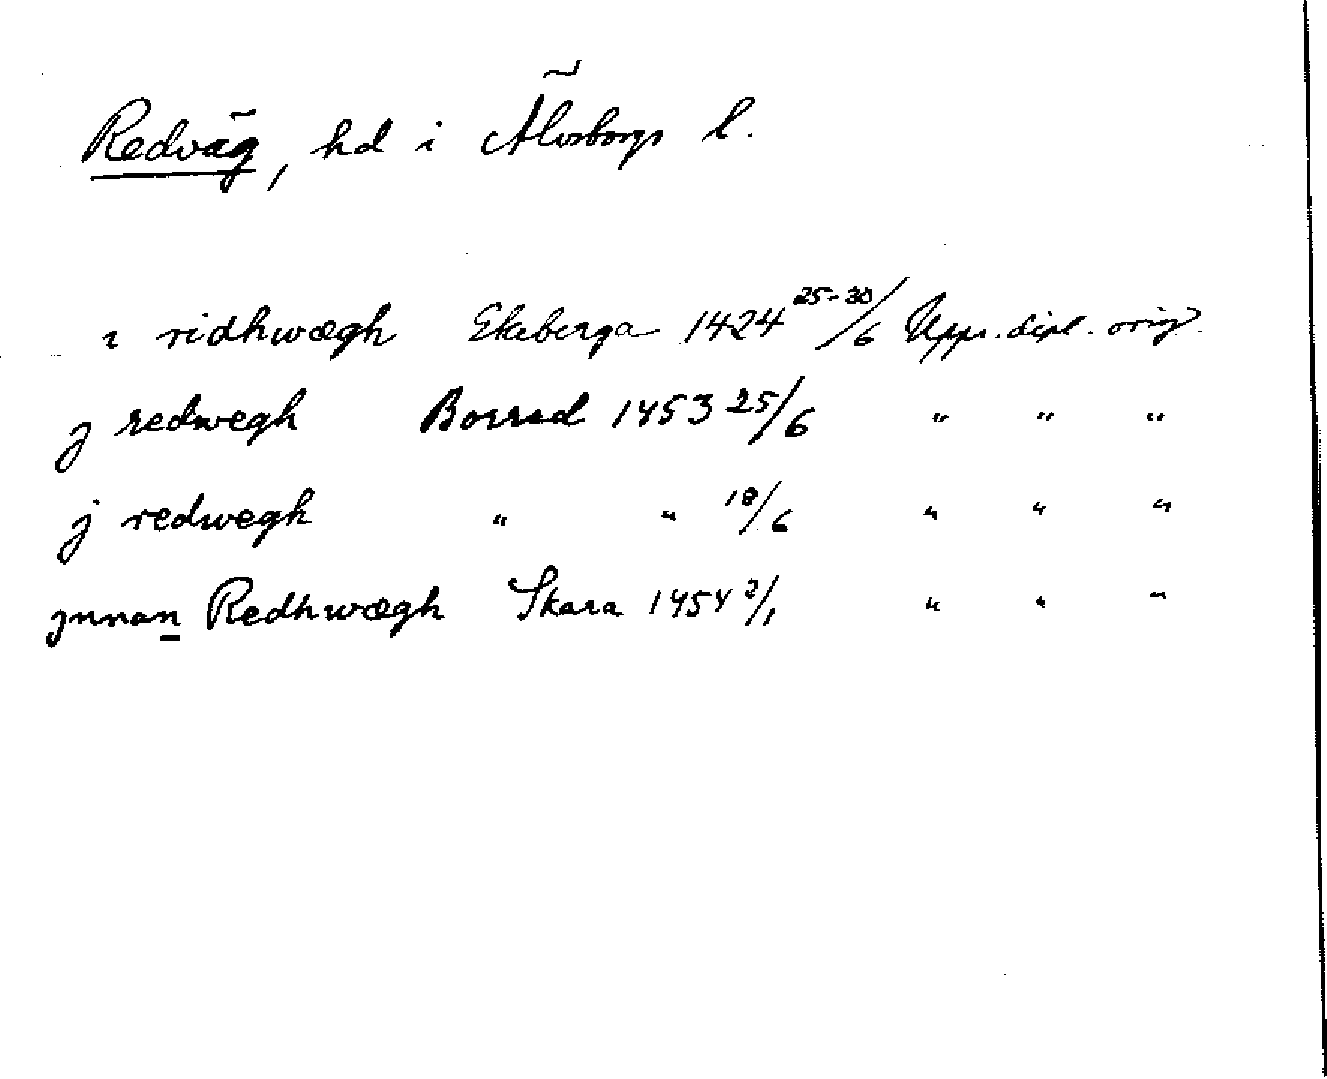 Redväg, hd i Älvsborgs l.
i ridhwægh Ekeberga 1424 25-30/6 Upps. dipl. orig.
j redwegh Borred 1453 25/6 " " "
j redwegh " " 18/6 " " "
jnnan Redhwægh Skara 1454 2/1 " " "